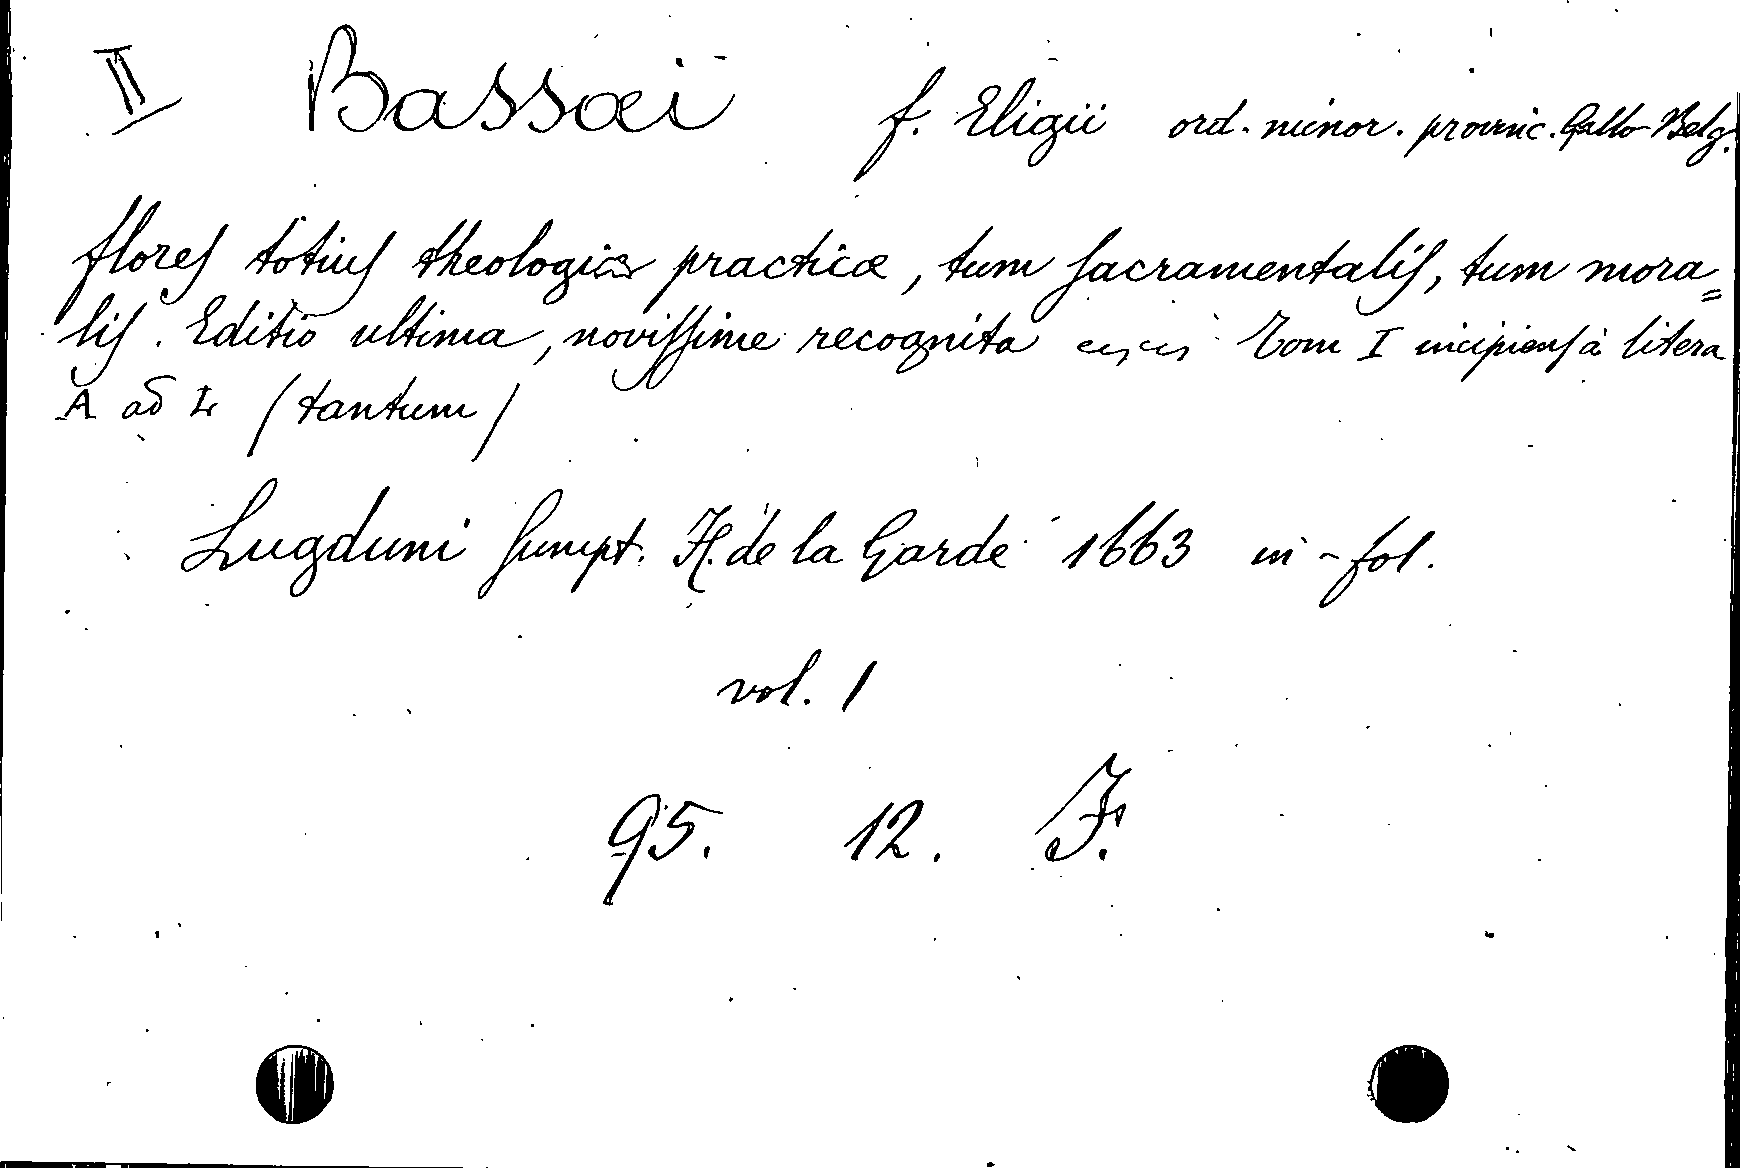 II Bassæi f. Eligii ord. minor. provinc. Gallo-Belg.
flores totius theologiæ practicæ, tum sacramentalis, tum mora=
lis. Editio ultima, novissime recognita Tom I incipiens à litera
A ad L (tantum)
Lugduni sumpt. H. de la Garde 1663 in-fol.
vol. 1
95. 12. F.